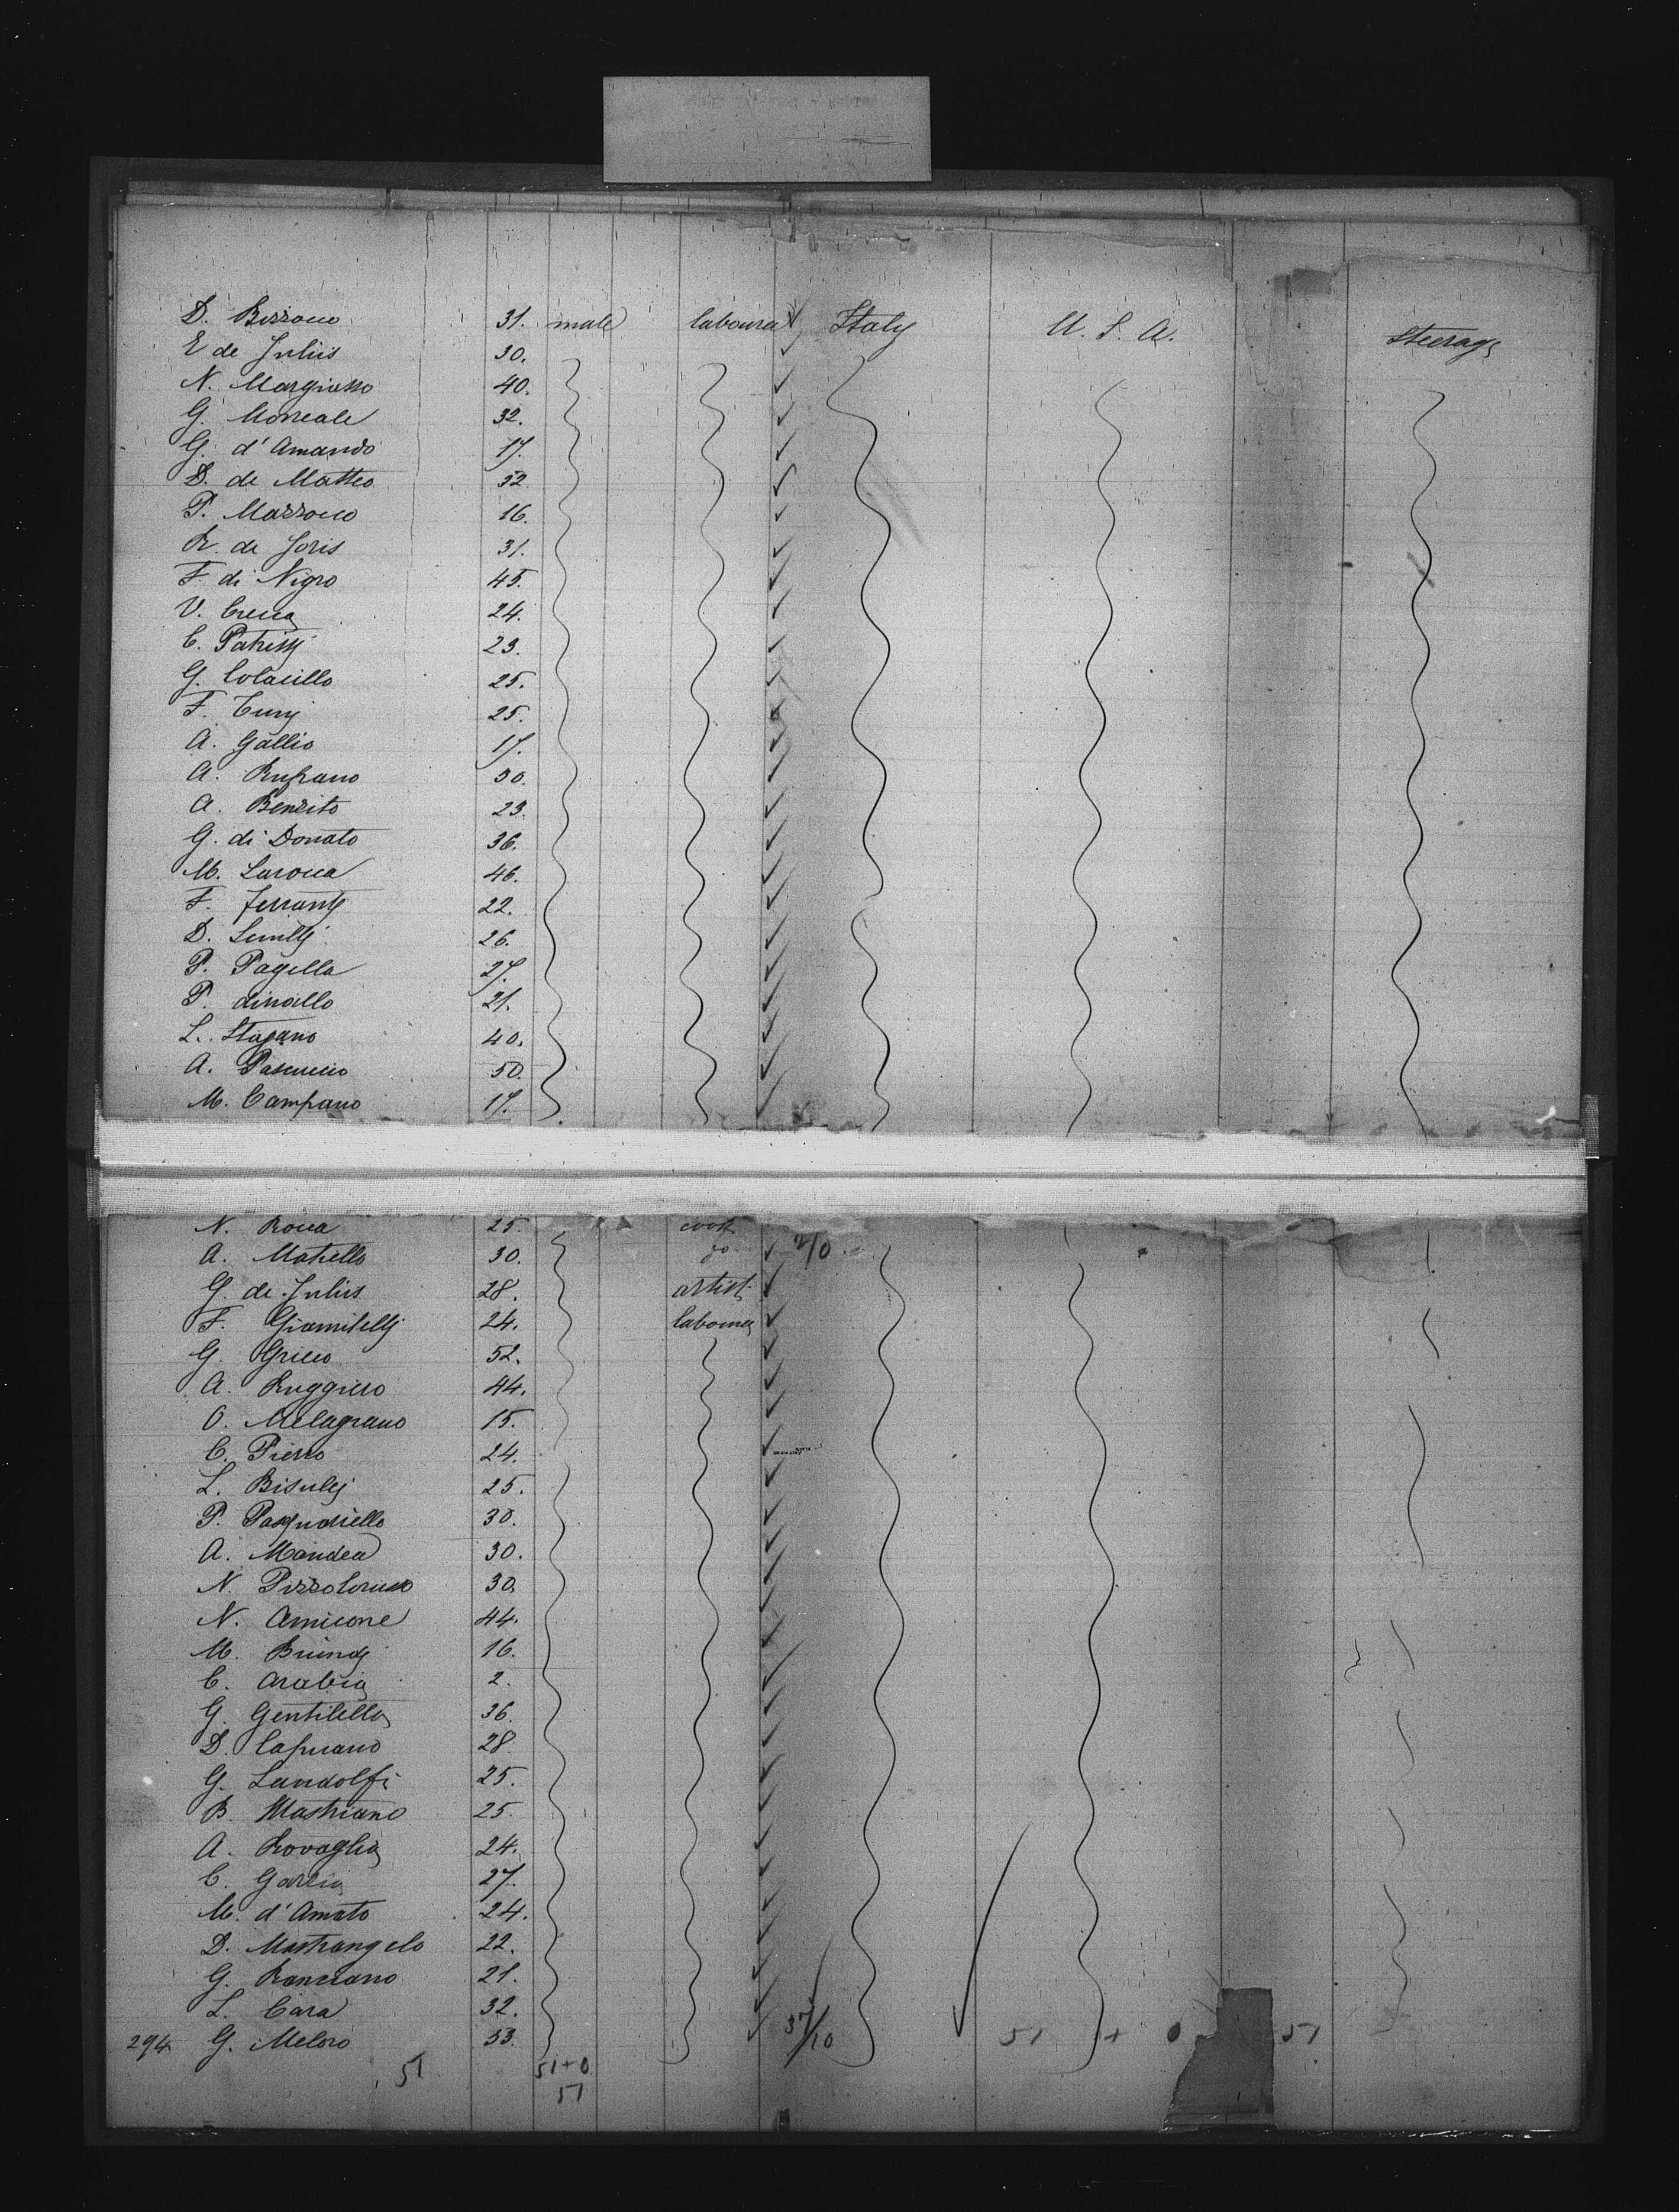 D. Bizzoco 31. male labourer Italy U. S. A. Steerage
E de Juliis 30.
N. Margiasso 40.
G. Monreale 32.
G. d'Amando 17.
D. de Matteo 32
P. Mazzoco 16.
R. de Joris 31.
F. di Nigro 45.
V. Crecca 24.
C. 23.
G. Colacillo 25.
F. 25.
A. Gallio 17.
A. Rufrano 30.
A. Benzito 23.
G. di Donato 36.
M. Larocca 46.
F. Ferrante 22.
D. 26.
P. Pagella 27.
P. 21.
L. Stagano 40.
A. Pascuccio 50.
M. Campano 17.
N. Rocca 25. cook
A. Matrello 30. do 2/0
G. de Juliis 28. artist
F. Giamitelli 24. labourer
G. Grieco 52.
A. Ruggiero 44.
O. Melagrano 15.
C. Pierro 24.
L. 25.
P. Pasquariello 30.
A. Mandea 30.
N. Pizzoloruso 30.
N. Amicone 44.
M. 16.
C. Arabia 2.
G. Gentilella 36.
D. Capuano 28
G. Landolfi 25.
B. Mastriano 25.
A. Rovaglia 24.
C. Garzia 27.
M. d'Amato 24.
D. Mastrangelo 22.
G. Ranciano 21.
L. Cara 32.
294 G. Meloro 53. 37/10 51 + 0 51
51 51+0
51